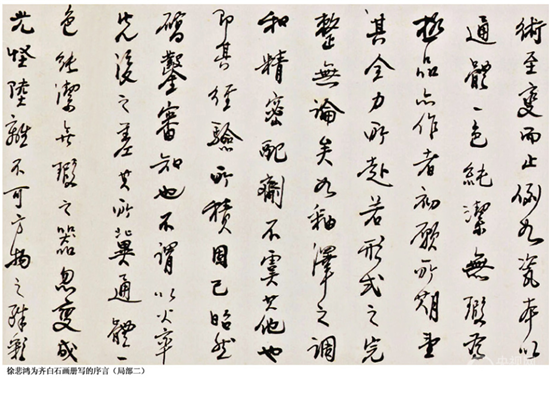 術至變而止例如瓷本以
通體一色純潔無瑕為
極品亦作者初願所期
其全力所赴若形式之完
整無論矣如釉澤之調
和精密配劑不虞其他也
即其經驗所積固已昭然
確鑿審知也不謂以火率
先後之差其所冀通體一
色純潔無瑕之器忽變成
光怪陸離不可方物之殊彩
徐悲鸿为齐白石画册写的序言（局部二）